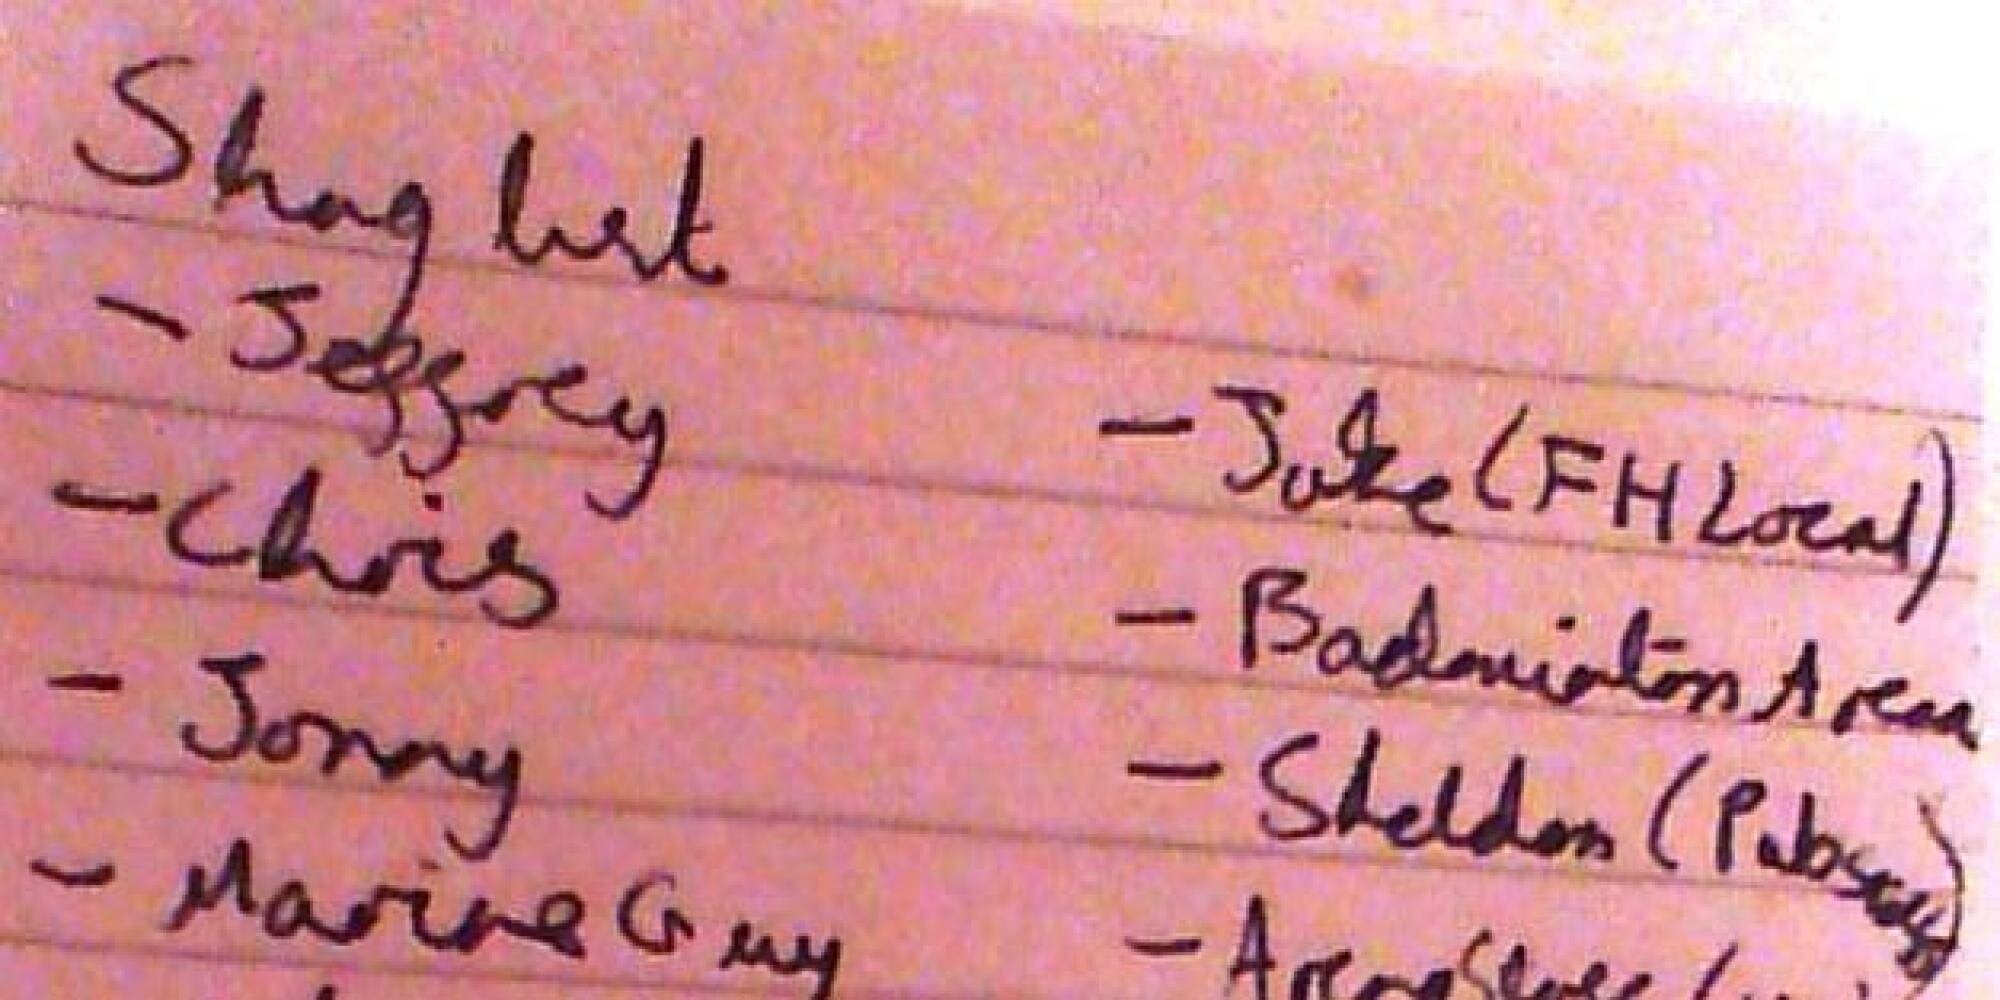 Shag list
- Jeffrey
- Chris
- Jonny
- Marine Guy
- Juke (FH Local)
- Badminton Arena
- Sheldon (
- Arena